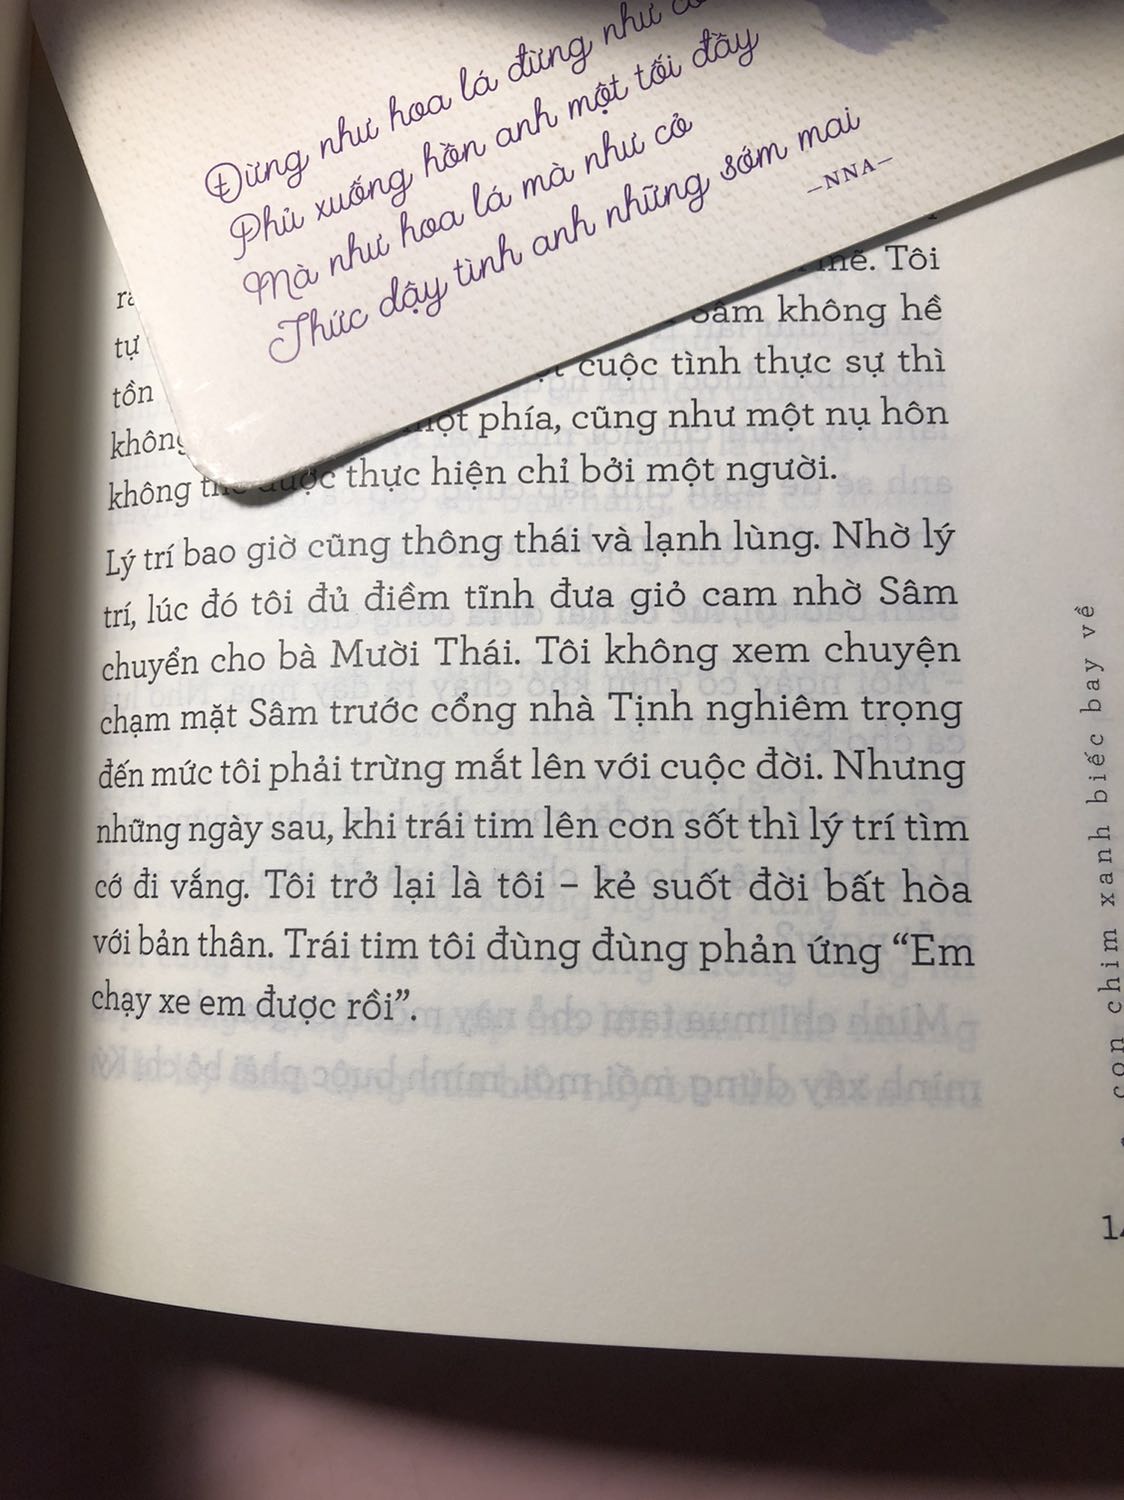 Đừng như hoa lá đừng như
Phủ xuống hồn anh một tối đầy
Mà như hoa lá mà như cỏ
Thức dậy tình anh những sớm mai
—NNA—
mẽ. Tôi
tự Sâm không hề
tồn cuộc tình thực sự thì
không một phía, cũng như một nụ hôn
không thể được thực hiện chỉ bởi một người.
Lý trí bao giờ cũng thông thái và lạnh lùng. Nhờ lý
trí, lúc đó tôi đủ điềm tĩnh đưa giỏ cam nhờ Sâm
chuyển cho bà Mười Thái. Tôi không xem chuyện
chạm mặt Sâm trước cổng nhà Tịnh nghiêm trọng
đến mức tôi phải trừng mắt lên với cuộc đời. Nhưng
những ngày sau, khi trái tim lên cơn sốt thì lý trí tìm
cớ đi vắng. Tôi trở lại là tôi – kẻ suốt đời bất hòa
với bản thân. Trái tim tôi đùng đùng phản ứng “Em
chạy xe em được rồi”.
con chim xanh biếc bay về